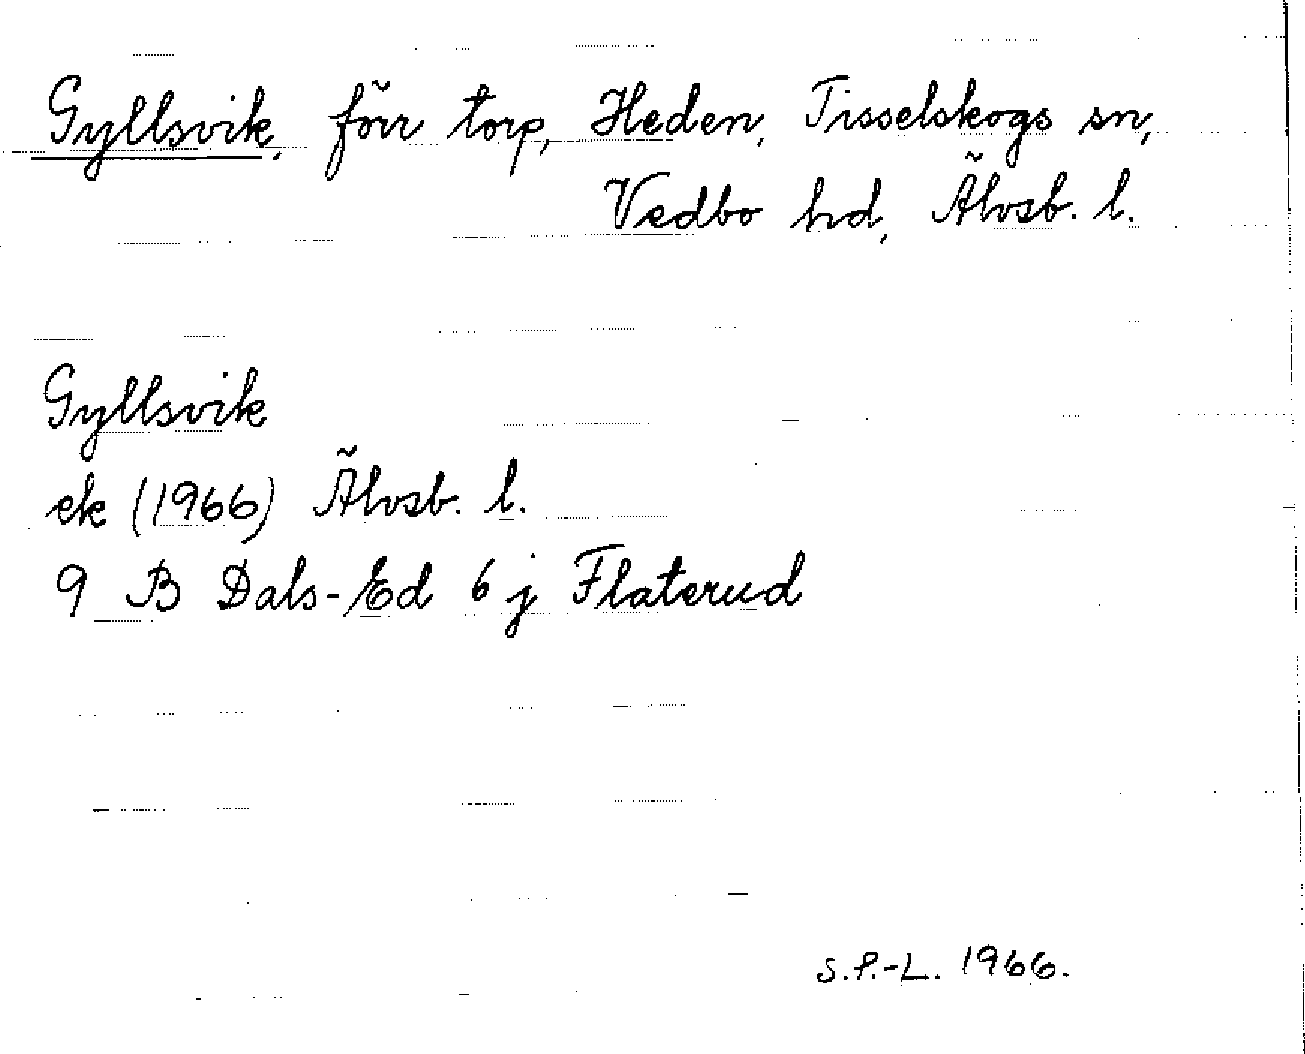 Gyllsvik, förr torp, Heden, Tisselskogs sn,
Vedbo hd, Älvsb. l.
Gyllsvik
ek (1966) Älvsb. l.
9 B Dals-Ed 6 j Flaterud
S.P.-L. 1966.